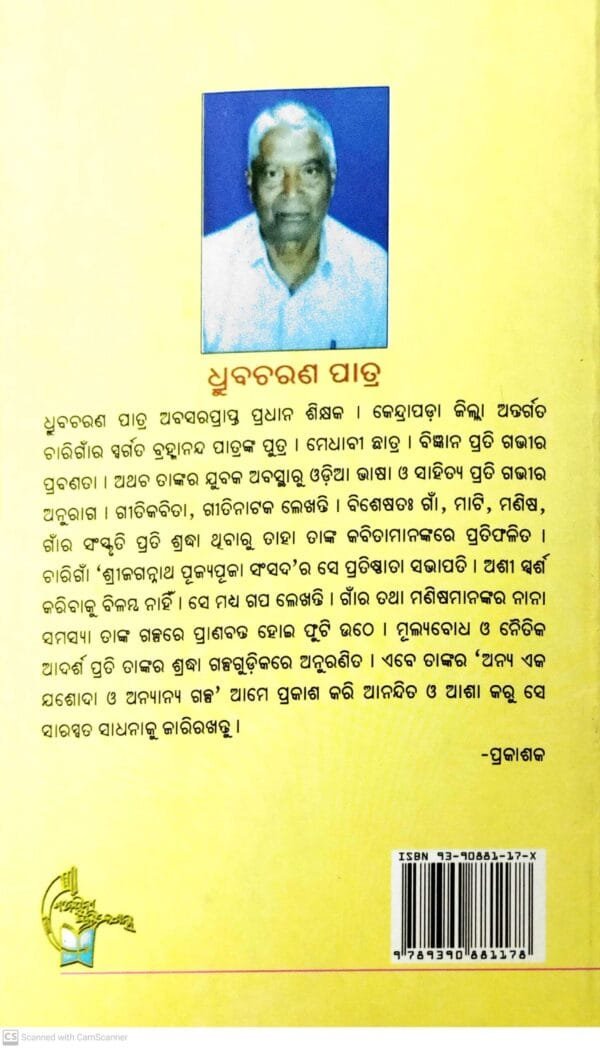 ଧ୍ରୁବଚରଣ ପାତ୍ର
ଧ୍ରୁବଚରଣ ପାତ୍ର ଅବସରପ୍ରାପ୍ତ ପ୍ରଧାନ ଶିକ୍ଷକ । କେନ୍ଦ୍ରାପଡ଼ା ଜିଲ୍ଲା ଅନ୍ତର୍ଗତ
ଚାରିଗାଁର ସ୍ୱର୍ଗତ ବ୍ରହ୍ମାନନ୍ଦ ପାତ୍ରଙ୍କ ପୁତ୍ର । ମେଧାବୀ ଛାତ୍ର । ବିଜ୍ଞାନ ପ୍ରତି ଗଭୀର
ପ୍ରବଣତା । ଅଥଚ ତାଙ୍କର ଯୁବକ ଅବସ୍ଥାରୁ ଓଡ଼ିଆ ଭାଷା ଓ ସାହିତ୍ୟ ପ୍ରତି ଗଭୀର
ଅନୁରାଗ । ଗୀତିକବିତା, ଗୀତିନାଟକ ଲେଖନ୍ତି । ବିଶେଷତଃ ଗାଁ, ମାଟି, ମଣିଷ,
ଗାଁର ସଂସ୍କୃତି ପ୍ରତି ଶ୍ରଦ୍ଧା ଥିବାରୁ ତାହା ତାଙ୍କ କବିତାମାନଙ୍କରେ ପ୍ରତିଫଳିତ ।
ଚାରିଗାଁ ‘ଶ୍ରୀଜଗନ୍ନାଥ ପୂଜ୍ୟପୂଜା ସଂସଦ’ର ସେ ପ୍ରତିଷ୍ଠାତା ସଭାପତି । ଅଶୀ ସ୍ପର୍ଶ
କରିବାକୁ ବିଳମ୍ବ ନାହିଁ । ସେ ମଧ୍ୟ ଗପ ଲେଖନ୍ତି । ଗାଁର ତଥା ମଣିଷମାନଙ୍କର ନାନା
ସମସ୍ୟା ତାଙ୍କ ଗଳ୍ପରେ ପ୍ରାଣବନ୍ତ ହୋଇ ଫୁଟି ଉଠେ । ମୂଲ୍ୟବୋଧ ଓ ନୈତିକ
ଆଦର୍ଶ ପ୍ରତି ତାଙ୍କର ଶ୍ରଦ୍ଧା ଗଳ୍ପଗୁଡ଼ିକରେ ଅନୁରଣିତ । ଏବେ ତାଙ୍କର ‘ଅନ୍ୟ ଏକ
ଯଶୋଦା ଓ ଅନ୍ୟାନ୍ୟ ଗଳ୍ପ’ ଆମେ ପ୍ରକାଶ କରି ଆନନ୍ଦିତ ଓ ଆଶା କରୁ ସେ
ସାରସ୍ୱତ ସାଧନାକୁ ଜାରିରଖନ୍ତୁ ।
-ପ୍ରକାଶକ
ISBN 93-90881-17-X
9 789390 881178
CS Scanned with CamScanner